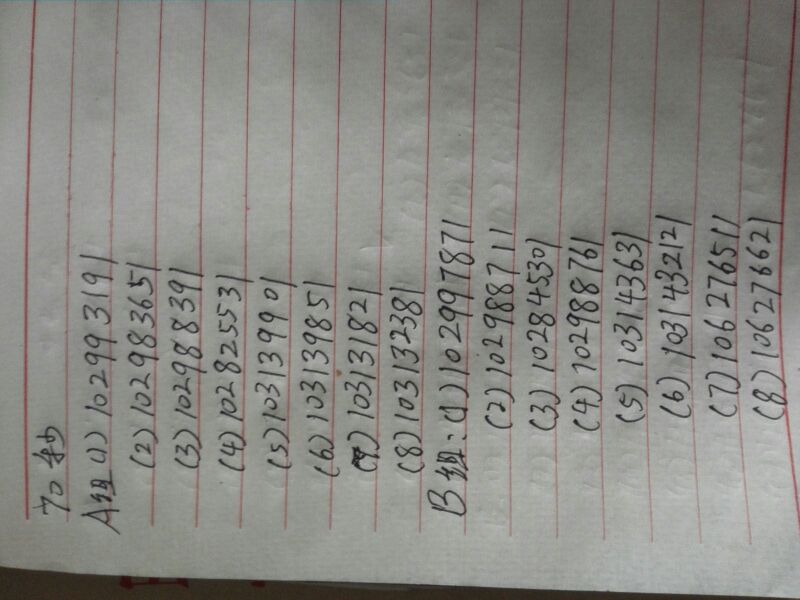 70秒
A组(1)102993191
(2)102983651
(3)102988391
(4)102825531
(5)103139901
(6)103139851
(7)103131821
(8)103132381
B组:(1)102997871
(2)102988711
(3)102845301
(4)102988761
(5)103143631
(6)1031432121
(7)106276511
(8)106276621